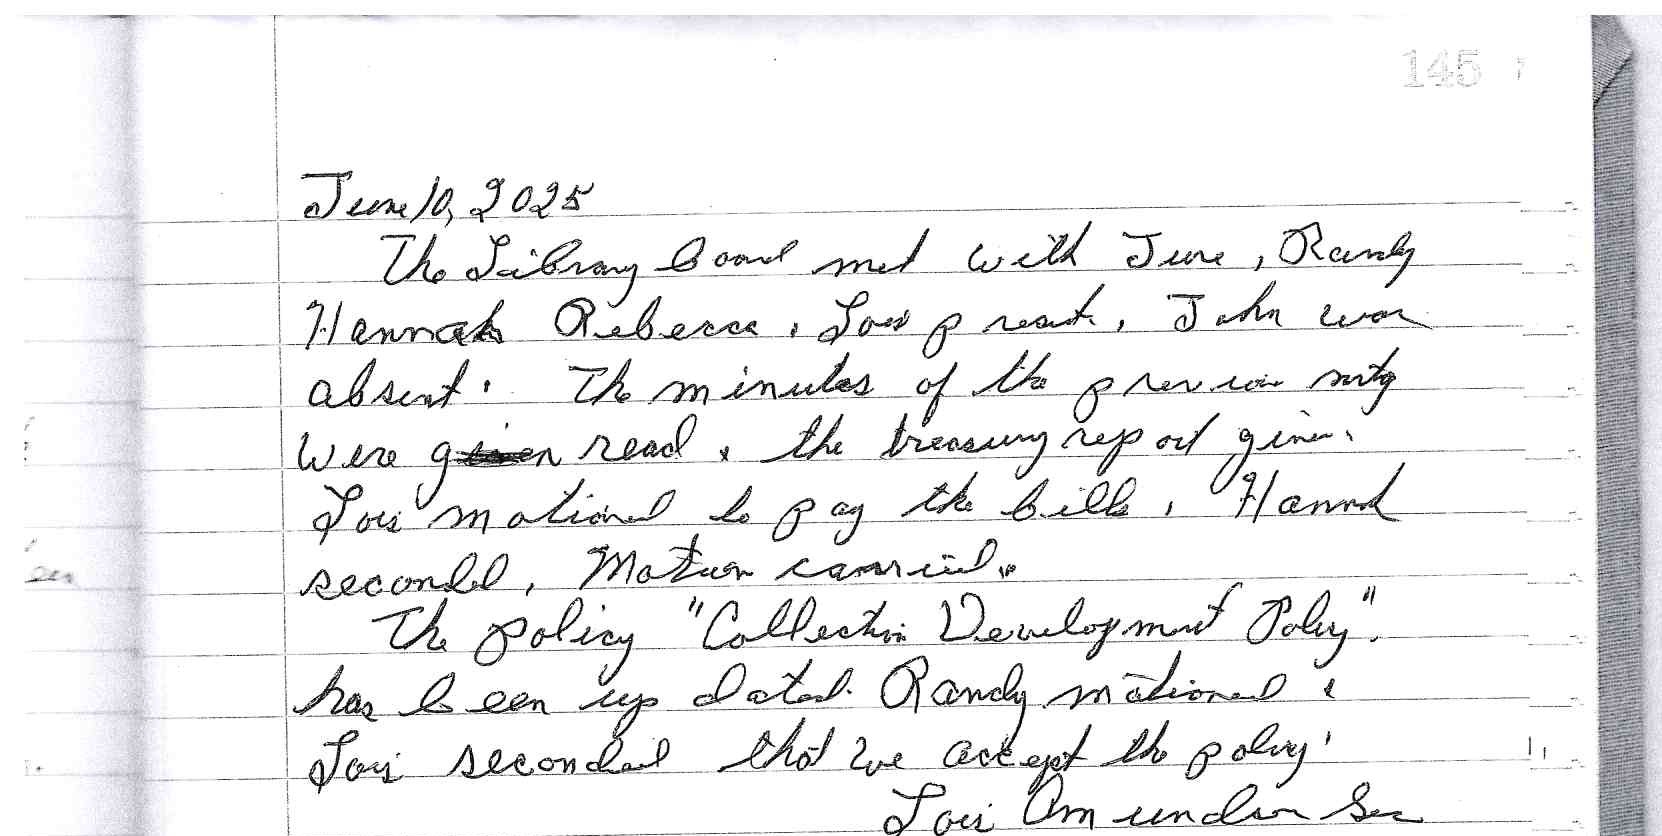 145
June 10, 2025
The Library board met with June, Randy
Hannah Rebecca, Lois present, John was
absent. The minutes of the previous mtg
were given read & the treasury report given.
Lois motioned to pay the bills, Hannah
seconded, Motion carried.
The policy "Collection Development Policy".
has been up dated. Randy motioned &
Lois seconded that we accept the policy
Lois Amundson Sec